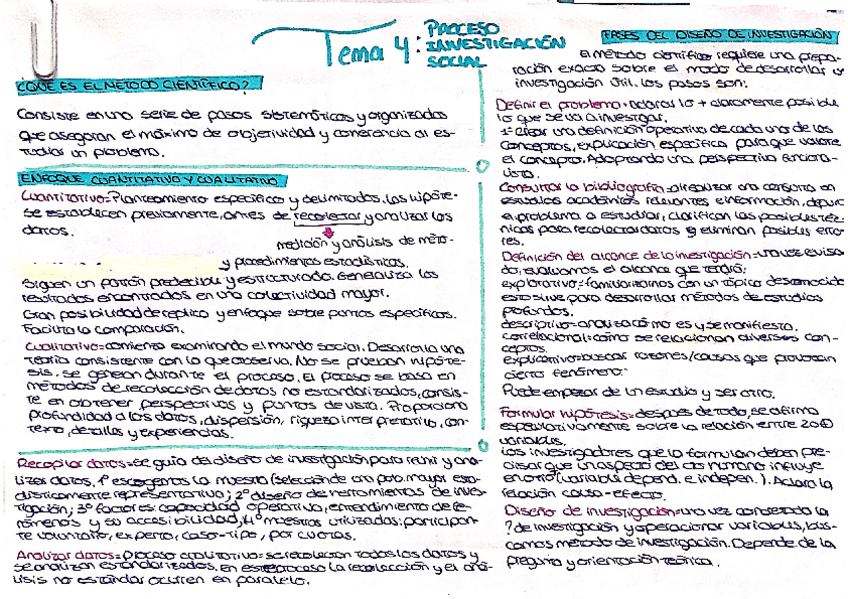 Tema 4: PROCESO
INVESTIGACIÓN
SOCIAL
¿QUÉ ES EL MÉTODO CIENTÍFICO?
Consiste en una serie de pasos sistemáticos y organizados
que aseguran el máximo de objetividad y coherencia al es-
tudiar un problema.
ENFOQUE CUANTITATIVO Y CUALITATIVO
Cuantitativo=Planteamiento específico y delimitados. Las hipóte-
sis se establecen previamente, antes de recolectar y analizar los
datos.
medición y análisis de méto-
y procedimientos estadísticos.
Siguen un patrón predecible y estructurado. Generaliza los
resultados encontrados en una colectividad mayor.
Gran posibilidad de replica y enfoque sobre puntos específicos.
Facilita la comparación.
Cualitativo=comienza examinando el mundo social. Desarrolla una
teoría consistente con lo que observa. No se prueban hipóte-
sis, se generan durante el proceso. El proceso se basa en
métodos de recolección de datos no estandarizados, consis-
te en obtener perspectivas y puntos de vista. Proporciona
profundidad a los datos, dispersión, riqueza interpretativa, con-
texto, detalles y experiencias.
Recopilar datos=se guía del diseño de investigación para reunir y ana-
lizar datos. 1º escogemos la muestra (selección de grupo mayor esta-
dísticamente representativo; 2º diseño de herramientas de inves-
tigación; 3º factores: capacidad operativa, entendimiento de fe-
nómenos y su accesibilidad, 4º muestras utilizadas: participan-
te voluntario, experto, caso-tipo, por cuotas.
Analizar datos=Proceso cualitativo=se recolectan todos los datos y
se analizan estandarizados. En este proceso la recolección y el aná-
lisis no estándar ocurren en paralelo.
FASES DEL DISEÑO DE INVESTIGACIÓN
El método científico requiere una prepa-
ración exacta sobre el modo de desarrollar u
investigación útil. Los pasos son:
Definir el problema=aclarar lo + claramente posible
lo que se va a investigar.
1º crear una definición operativa de cada uno de los
conceptos, explicación específica para que valore
el concepto. Adoptando una perspectiva
Consultar la bibliografía=al realizar una consulta en
estudios académicos relevantes e información, depura
el problema a estudiar, clarifican las posibles téc-
nicas para recolectar datos y eliminan posibles erro-
res.
Definición del alcance de la investigación=una vez revisa-
do, evaluamos el alcance que tendrá:
explorativo=familiarizarnos con un tópico desconocido
esto sirve para desarrollar métodos de estudios
profundos.
descriptivo=analiza cómo es y se manifiesta.
correlacional=cómo se relacionan diversos con-
ceptos.
explicativo=buscar razones/causas que provocan
cierto fenómeno.
Puede empezar de un estudio y ser otro.
Formular hipótesis=después de todo, se afirma
especulativamente sobre la relación entre 2 o +
variables.
Los investigadores que la formulan deben pre-
cisar que un aspecto del cto humano influye
en otro (variables depend. e indepen.). Aclara la
relación causa-efecto.
Diseño de investigación=una vez concretada la
? de investigación y operacionar variables, bus-
camos método de investigación. Depende de la
pregunta y orientación teórica.